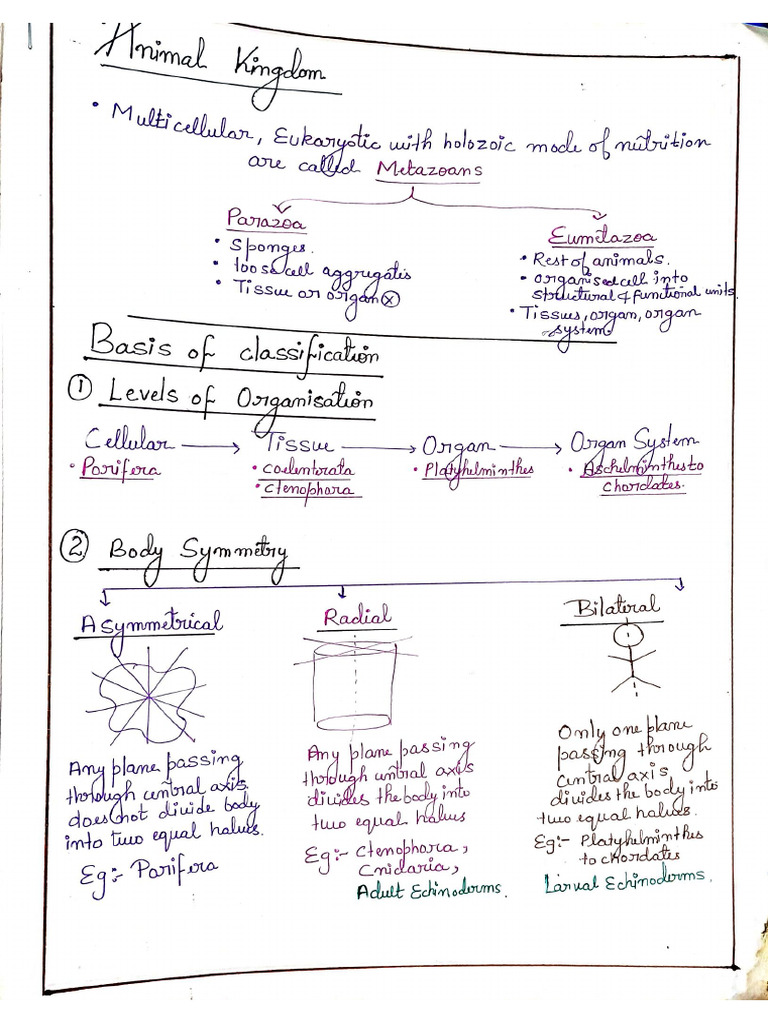 Animal Kingdom
• Multicellular, Eukaryotic with holozoic mode of nutrition
are called Metazoans
Parazoa
• Sponges.
• loose cell aggregates
• Tissue or organ ⓧ
Eumetazoa
• Rest of animals.
• organised cell into
structural & functional units.
• Tissues, organ, organ
system
Basis of classification
① Levels of Organisation
Cellular → Tissue → Organ → Organ System
• Porifera • coelentorata • Platyhelminthes • Aschelminthes to
• ctenophora chordates.
② Body Symmetry
Asymmetrical
Any plane passing
through central axis
does not divide body
into two equal halves.
Eg:- Porifera
Radial
Any plane passing
through central axis
divides the body into
two equal halves
Eg:- Ctenophora,
Cnidaria,
Adult Echinoderms.
Bilateral
Only one plane
passing through
central axis
divides the body into
two equal halves.
Eg:- Platyhelminthes
to chordates
Larval Echinoderms.